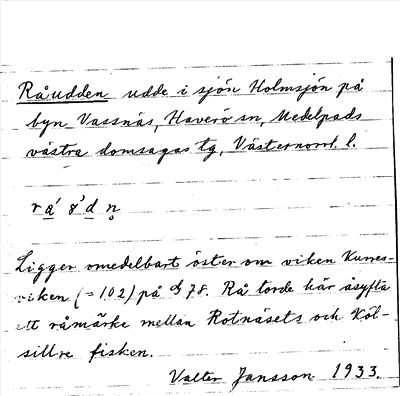 Råudden udde i sjön Holmsjön på
byn Vassnäs, Haverö sn, Medelpads
västra domsagas tg, Västernorrl. l.
Ligger omedelbart öster om viken Kurres-
viken (=102) på 78. Rå torde här åsyfta
ett råmärke mellan Rotnäsets och Köl-
sillre fisken.
Valter Jansson 1933.